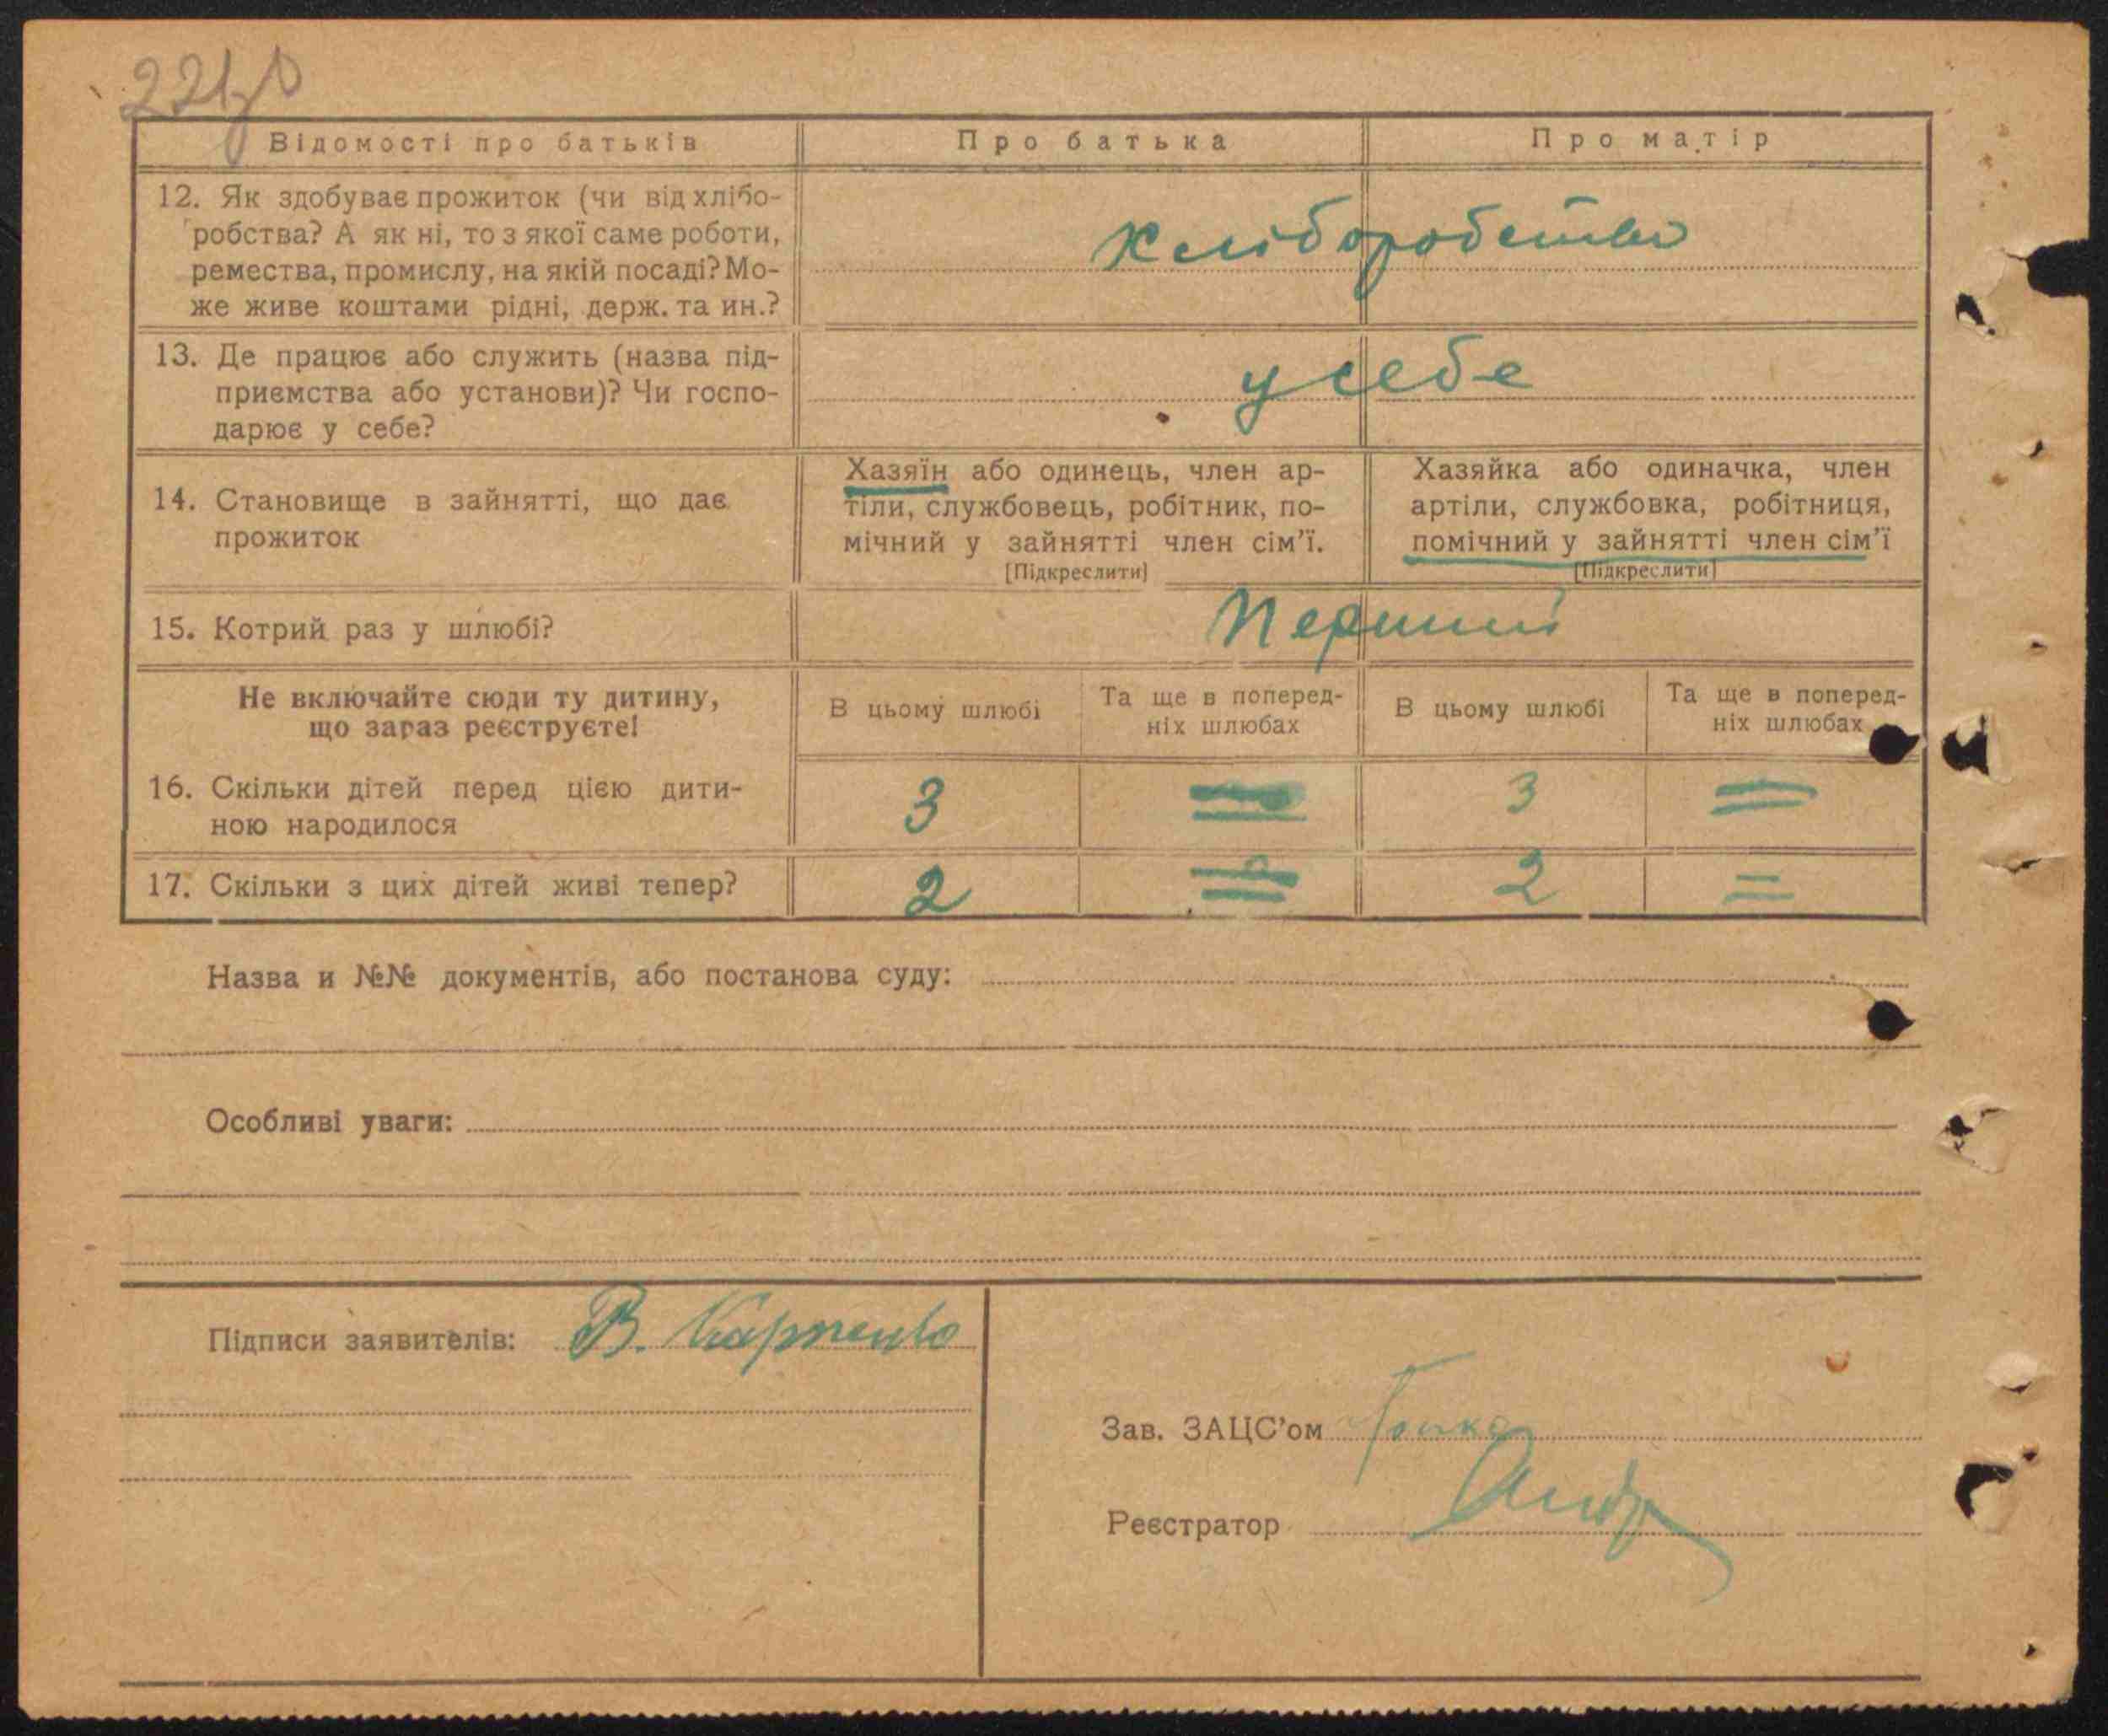 Відомості про батьків
Про батька
Про матір
12. Як здобуває прожиток (чи від хлібо-
робства? А як ні, то з якої саме роботи,
ремества, промислу, на якій посаді? Мо-
же живе коштами рідні, держ. та ин.?
хліборобство
13. Де працює або служить (назва під-
приємства або установи)? Чи госпо-
дарює у себе?
у себе
14. Становище в зайнятті, що дає
прожиток
Хазяїн або одинець, член ар-
тіли, службовець, робітник, по-
мічний у зайнятті член сім'ї.
[Підкреслити]
Хазяйка або одиначка, член
артіли, службовка, робітниця,
помічний у зайнятті член сім'ї
[Підкреслити]
15. Котрий раз у шлюбі?
Перший
Не включайте сюди ту дитину,
що зараз реєструєте!
В цьому шлюбі
Та ще в поперед-
ніх шлюбах
В цьому шлюбі
Та ще в поперед-
ніх шлюбах
16. Скільки дітей перед цією дити-
ною народилося
3
3
17. Скільки з цих дітей живі тепер?
2
2
Назва и №№ документів, або постанова суду:
Особливі уваги:
Підписи заявителів: В. Карпенко
Зав. ЗАЦС'ом
Реєстратор